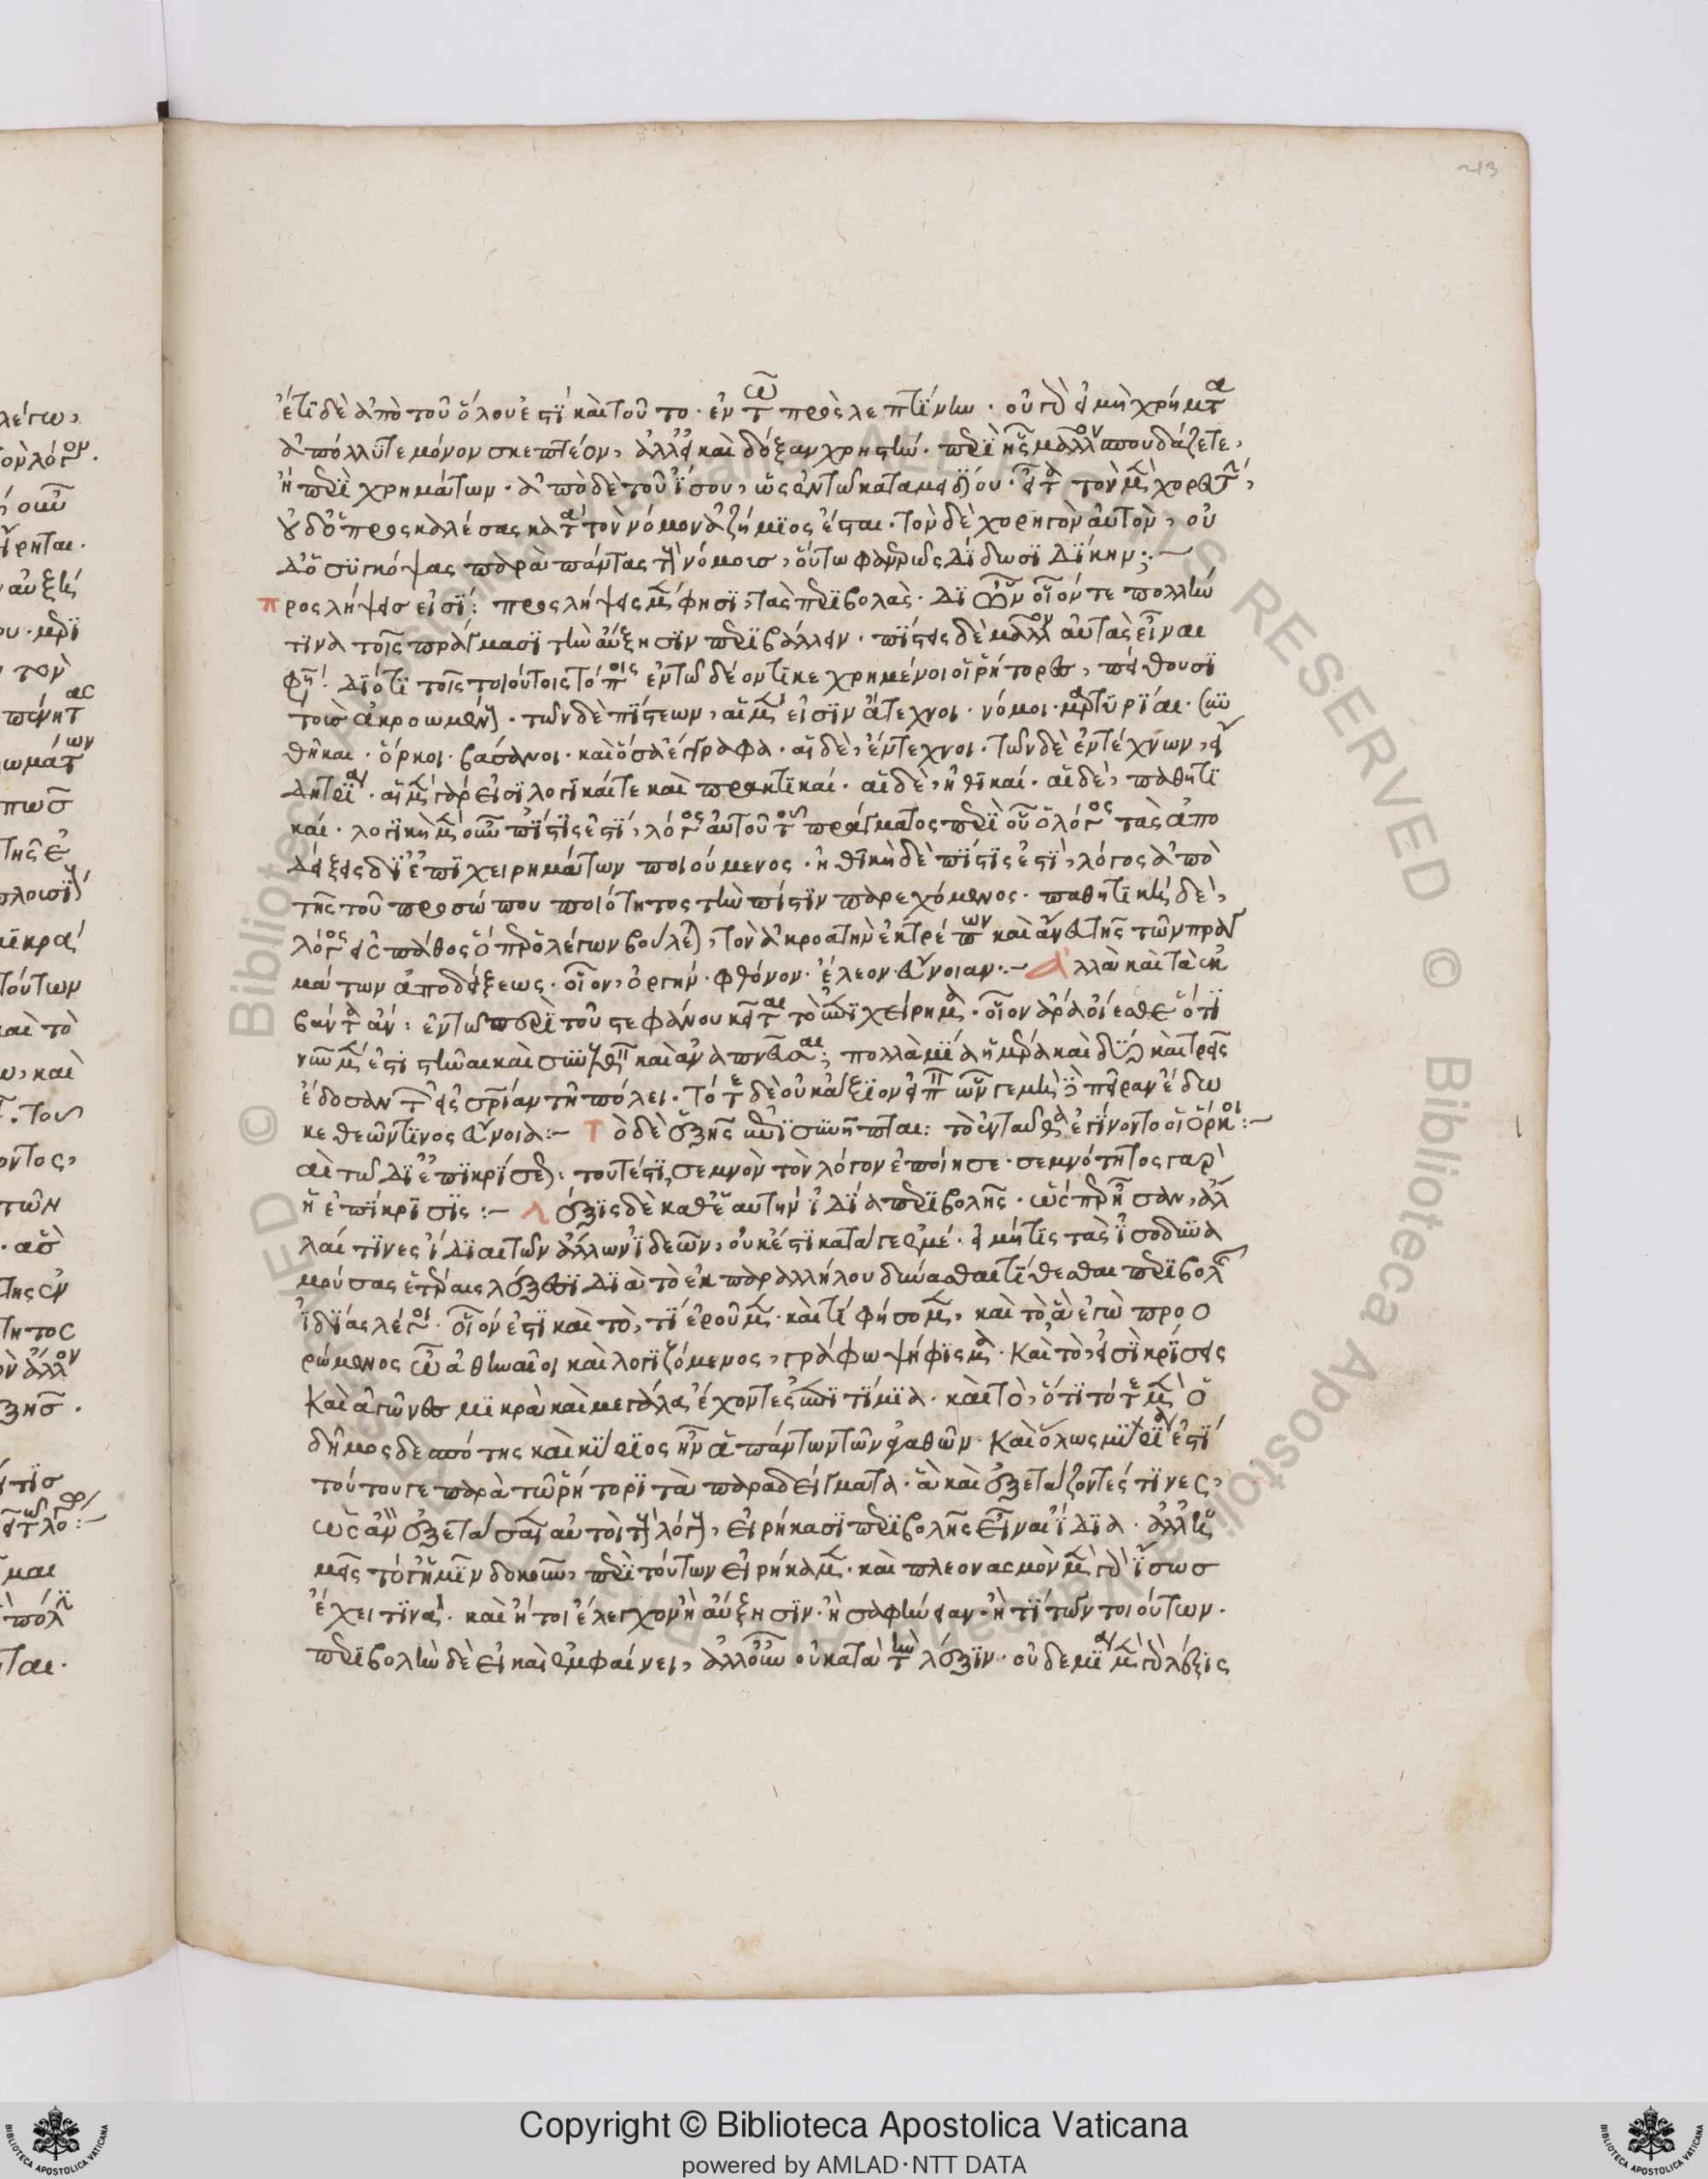 213
ἔτι δὲ ἀπὸ τοῦ ὅλου ἐστὶ καὶ τοῦτο· ἐν τῶ πρὸς λεπτίνην· οὐ γὰρ εἰ μὴ χρήματα
ἀπόλλυτε μόνον σκεπτέον, ἀλλ' εἰ καὶ δόξαν χρηστήν· περὶ ἧς μᾶλλον σπουδάζετε,
ἢ περὶ χρημάτων· ἀπὸ δὲ τοῦ ἴσου, ὡς ἐν τῶ κατὰ μειδίου· εἶτα τὸν μὲν χορευτὴν,
οὐδ' ὁ προσκαλέσας κατὰ τὸν νόμον ἀζήμιος ἔσται· τὸν δὲ χορηγὸν αὐτὸν, οὐ
δ' ὁ συγκόψας παρὰ πάντας τοὺς νόμους, οὕτω φανερῶς δίδωσι δίκην:
προσλήψεις εἰσί: προσλήψεις μὲν φησὶ, τὰς περιβολὰς· δι' ὧν οἷόν τε πολλήν
τινα τοῖς πράγμασι τὴν αὔξησιν περιβάλλειν· πίστεις δὲ μᾶλλον αὐτὰς εἶναι
φησί· διότι τοῖς τοιούτοις τόποις ἐν τῶ δέοντι κεχρημένοι οἱ ῥήτορες, πείθουσι
τοὺς ἀκροωμένους· τῶν δὲ πίστεων, αἱ μὲν εἰσὶν ἄτεχνοι· νόμοι· μαρτυρίαι· συν
θῆκαι· ὅρκοι· βάσανοι· καὶ ὅσα ἔγγραφα· αἱ δὲ, ἔντεχνοι· τῶν δὲ ἐντέχνων, εἴ
δη τρία· αἱ μὲν γάρ εἰσι λογικαί τε καὶ πρακτικαί· αἱ δὲ, ἠθικαί· αἱ δὲ, παθητι
καί· λογικὴ μὲν οὖν πίστις ἐστὶ, λόγος αὐτοῦ τοῦ πράγματος περὶ οὗ ὁ λόγος τὰς ἀπο
δείξεις δι' ἐπιχειρημάτων ποιούμενος· ἠθικὴ δὲ πίστις ἐστὶ, λόγος ἀπὸ
τῆς τοῦ προσώπου ποιότητος τὴν πίστιν παρεχόμενος· παθητικὴ δὲ,
λόγος εἰς πάθος ὅπερ ὁ λέγων βούλεται, τὸν ἀκροατὴν ἐκτρέπων καὶ ἄνευ τῆς τῶν πραγ
μάτων ἀποδείξεως· οἷον, ὀργήν· φθόνον· ἔλεον· εὔνοιαν:– Ἀλλὰ καὶ τὰ ἐκ
βάντα ἄν: ἐν τῶ περὶ τοῦ στεφάνου κεῖται τὸ ἐπιχείρημα· οἷον ἆρα οἴεσθε ὅτι
νῦν μὲν ἐστὶ στῆναι καὶ συνελθεῖν καὶ ἀναπνεῦσαι; πολλὰ μία ἡμέρα καὶ δύο καὶ τρεῖς
ἔδοσαν τῶν εἰς σωτηρίαν τῆ πόλει· τότε δὲ οὐκ ἄξιον εἰπεῖν ἅ γε μὴ δὲ πεῖραν ἔδω
κε θεῶν τινος εὐνοία:– Τὸ δὲ ἑξῆς ἐπισυνῆπται: τὸ ἐνταῦθα ἐγίνοντο οἱ ὅρκοι:–
αὐτῶ δι' ἐπικρίσεως: τουτέστι, σεμνὸν τὸν λόγον ἐποίησε· σεμνότητος γὰρ
ἡ ἐπίκρισις:– Λέξις δὲ καθ' ἑαυτὴν ἰδία περιβολῆς· ὥσπερ ἦσαν, ἄλ
λαι τινες ἴδιαι τῶν ἄλλων ἰδεῶν, οὐκέτι κατά γε ἐμέ· εἰ μήτις τὰς ἰσοδυνα
μούσας ἑτέραις λέξεσι διὰ τὸ ἐκ παραλλήλου δύνασθαι τίθεσθαι περιβολῆς
ἰδίας λέγοι· οἷόν ἐστι καὶ τὸ, τί ἐροῦμεν· καὶ τί φήσομεν, καὶ τὸ, ἃ ἐγὼ προο
ρώμενος ὦ ἀθηναῖοι καὶ λογιζόμενος, γράφω ψήφισμα· Καὶ τὸ, εἰσὶ κρίσεις
Καὶ ἀγῶνες μικρὰ καὶ μεγάλα ἔχοντες ἐπιτίμια· καὶ τὸ, ὅτι τότε μὲν ὁ
δῆμος δεσπότης καὶ κύριος ἦν ἁπάντων τῶν ἀγαθῶν· Καὶ ὅλως μυρία ἐστὶ
τούτου γε παρὰ τῶ ῥήτορι τὰ παραδείγματα· ἃ καὶ ἐξετάζοντές τινες,
ὡς ἂν ἐξετάσαιεν αὐτοὶ τοὺς λόγους, εἰρήκασι περιβολῆς εἶναι ἴδια· ἀλλ' ἡ
μεῖς τό γ' ἡμῖν δοκοῦν, περὶ τούτων εἰρήκαμεν· καὶ πλεονασμὸν μὲν γὰρ ἴσως
ἔχει τινὰ· καὶ ἤτοι ἔλεγχον ἢ αὔξησιν· ἢ σαφήνειαν· ἤ τι τῶν τοιούτων·
περιβολὴν δὲ εἰ καὶ ἐμφαίνει, ἀλλ' οὖν οὐ κατὰ τὴν λέξιν· οὐδεμία μὲν γὰρ λέξις
Copyright © Biblioteca Apostolica Vaticana
powered by AMLAD·NTT DATA